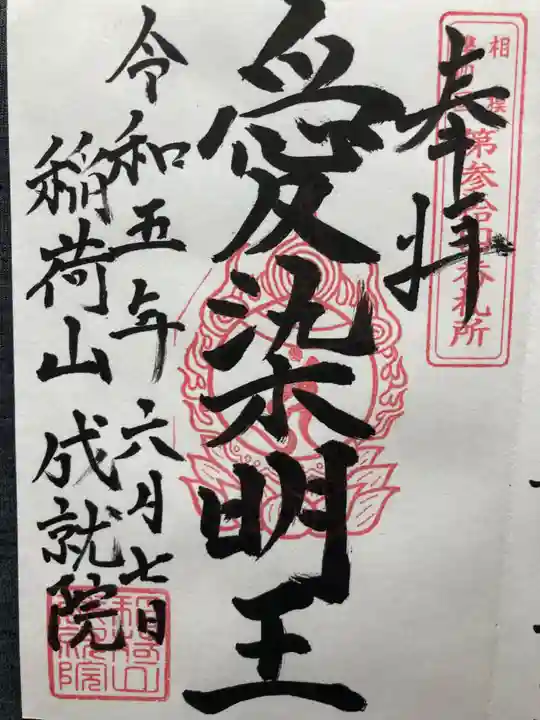 奉拝
相模
第参拾四番札所
愛染明王
令和五年六月七日
稲荷山 成就院